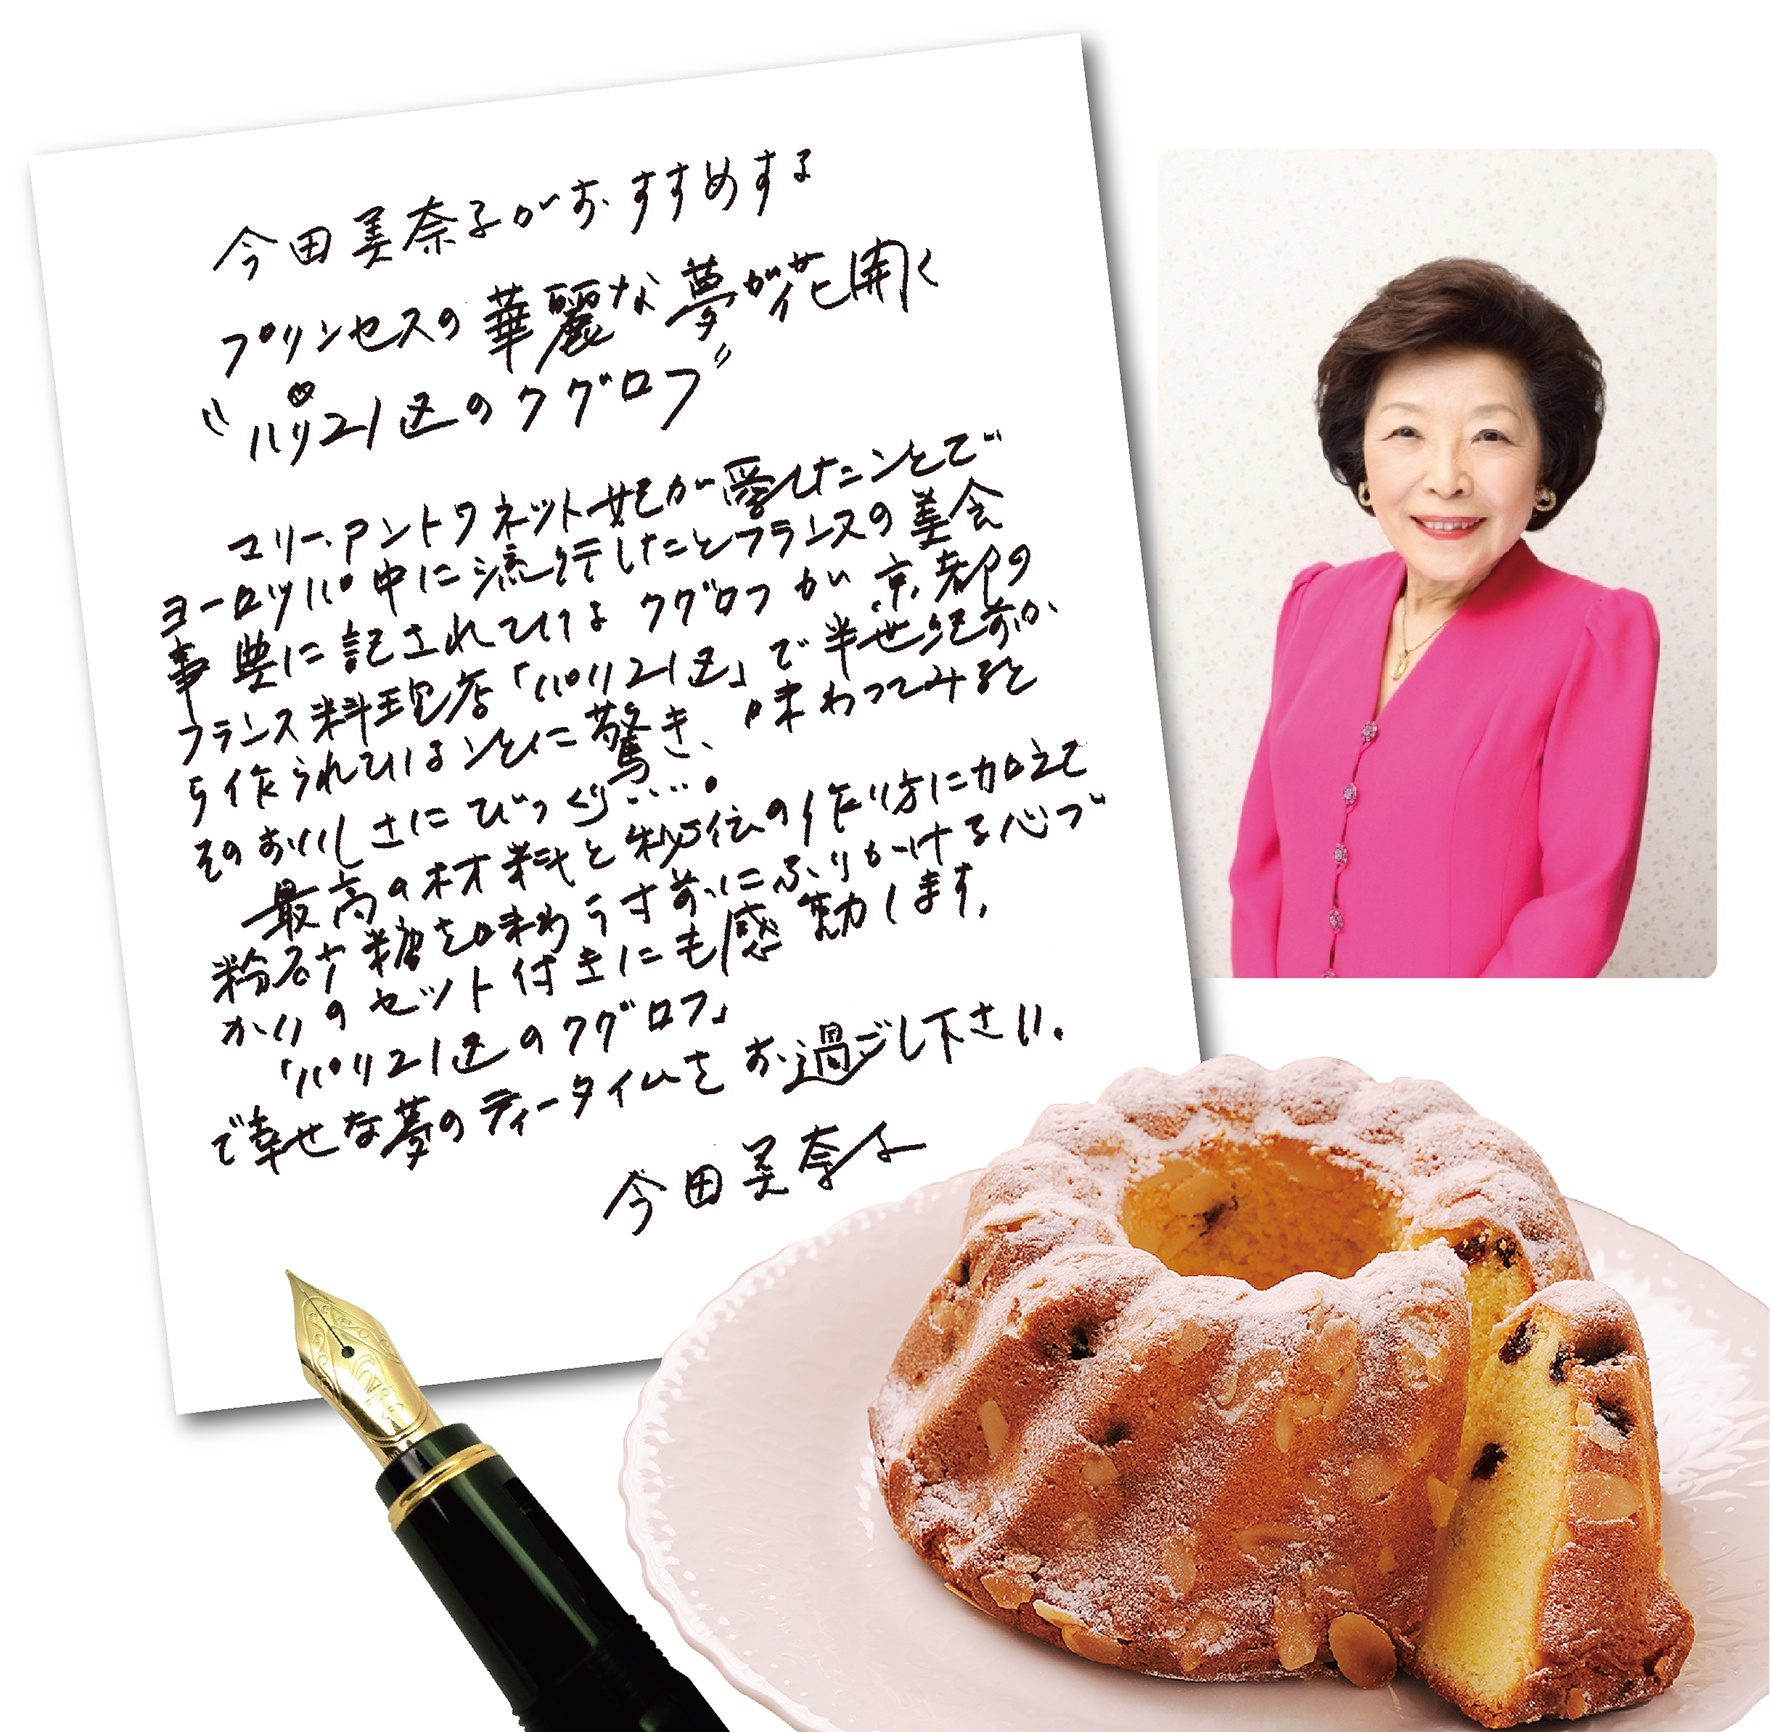 今田美奈子がおすすめする
プリンセスの華麗な夢が花開く
"パリ21区のクグロフ"
マリー・アントワネット妃が愛したことで
ヨーロッパ中に流行したとフランスの美食
事典に記されているクグロフが京都の
フランス料理店「パリ21区」で半世紀前か
ら作られていることに驚き、味わってみると
そのおいしさにびっくり……。
最高の材料と秘伝の作り方に加えて
粉砂糖を味わう寸前にふりかける心づ
かいのセット付きにも感動します。
「パリ21区のクグロフ」
で幸せな夢のティータイムをお過ごし下さい。
今田美奈子